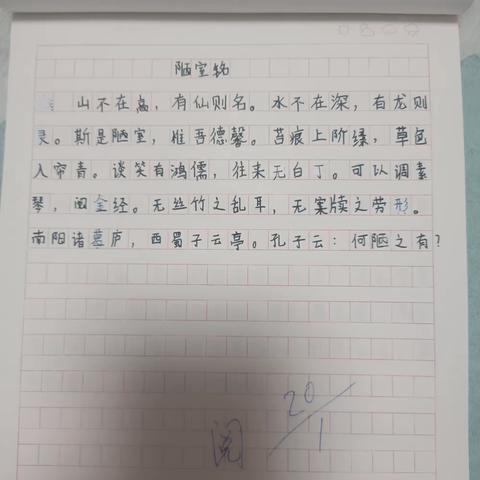 陋室铭
山不在高，有仙则名。水不在深，有龙则
灵。斯是陋室，惟吾德馨。苔痕上阶绿，草色
入帘青。谈笑有鸿儒，往来无白丁。可以调素
琴，阅金经。无丝竹之乱耳，无案牍之劳形。
南阳诸葛庐，西蜀子云亭。孔子云：何陋之有？
阅
20/1